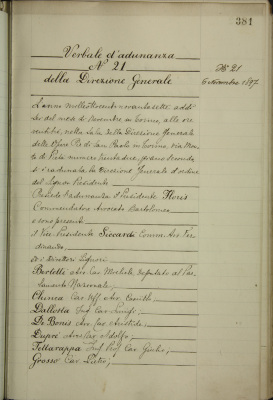 381
Verbale d'adunanza
N° 21
della Direzione Generale
N. 21
6 Novembre 1897.
L'anno milleottocentonovantasette addì
sei del mese di Novembre in Torino, alle ore
nella sala della Direzione Generale
delle Opere Pie di San Paolo in Torino, via Mon-
te di Pietà numero trentadue, piano secondo
si è radunata la Direzione Generale d'ordine
del Signor Presidente
Presiede l'adunanza il Presidente Floris
Commendatore Avvocato Bartolomeo
e sono presenti
il Vice Presidente Siccardi Comm. Avv. Fer-
dinando
ed i Direttori Signori
Bertetti Avv. Cav. Michele, deputato al Par-
lamento Nazionale;
Chinea Cav. Uff. Avv.
Dallosta Cav. Luigi;
De Bonis Avv. Cav. Aristide;
Dupré Avv. Cav. Adolfo;
Fettarappa Prof. Cav. Giulio;
Grosso Cav. Pietro;